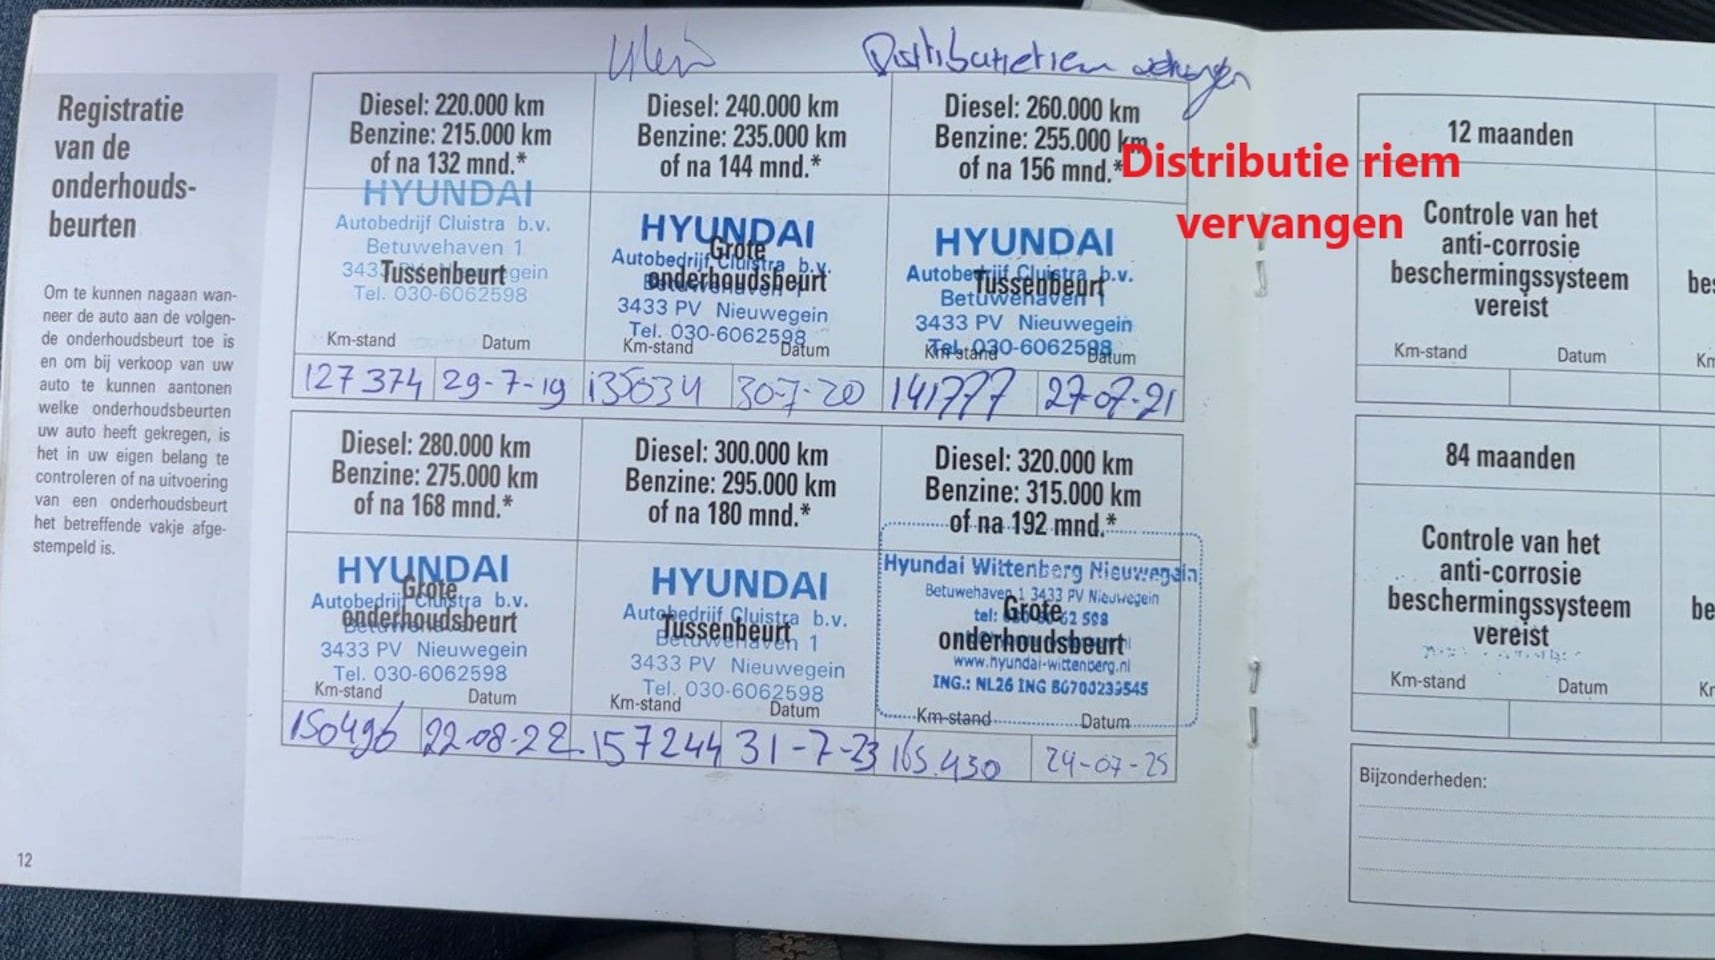 Klein
Distributieriem vervangen
Registratie
van de
onderhouds-
beurten
Om te kunnen nagaan wan-
neer de auto aan de volgen-
de onderhoudsbeurt toe is
en om bij verkoop van uw
auto te kunnen aantonen
welke onderhoudsbeurten
uw auto heeft gekregen, is
het in uw eigen belang te
controleren of na uitvoering
van een onderhoudsbeurt
het betreffende vakje afge-
stempeld is.
12
Diesel: 220.000 km
Benzine: 215.000 km
of na 132 mnd.*
HYUNDAI
Autobedrijf Cluistra b.v.
Betuwehaven 1
3433 PV Nieuwegein
Tussenbeurt
Tel. 030-6062598
Km-stand Datum
127374 29-7-19
Diesel: 240.000 km
Benzine: 235.000 km
of na 144 mnd.*
HYUNDAI
Grote
Autobedrijf Cluistra b.v.
onderhoudsbeurt
Betuwehaven 1
3433 PV Nieuwegein
Tel. 030-6062598
Km-stand Datum
135034 30-7-20
Diesel: 260.000 km
Benzine: 255.000 km
of na 156 mnd.*
Distributie riem
vervangen
HYUNDAI
Autobedrijf Cluistra b.v.
Tussenbeurt
Betuwehaven 1
3433 PV Nieuwegein
Tel. 030-6062598
Km-stand Datum
141777 27-07-21
Diesel: 280.000 km
Benzine: 275.000 km
of na 168 mnd.*
HYUNDAI
Grote
Autobedrijf Cluistra b.v.
onderhoudsbeurt
Betuwehaven 1
3433 PV Nieuwegein
Tel. 030-6062598
Km-stand Datum
150496 22-08-22
Diesel: 300.000 km
Benzine: 295.000 km
of na 180 mnd.*
HYUNDAI
Autobedrijf Cluistra b.v.
Tussenbeurt
Betuwehaven 1
3433 PV Nieuwegein
Tel. 030-6062598
Km-stand Datum
157244 31-7-23
Diesel: 320.000 km
Benzine: 315.000 km
of na 192 mnd.*
Hyundai Wittenberg Nieuwegein
Betuwehaven 1 3433 PV Nieuwegein
tel: 62 598
Grote
onderhoudsbeurt
www.hyundai-wittenberg.nl
ING.: NL26 ING
Km-stand Datum
165.430 24-07-25
12 maanden
Controle van het
anti-corrosie
beschermingssysteem
vereist
Km-stand Datum
84 maanden
Controle van het
anti-corrosie
beschermingssysteem
vereist
Km-stand Datum
Bijzonderheden: